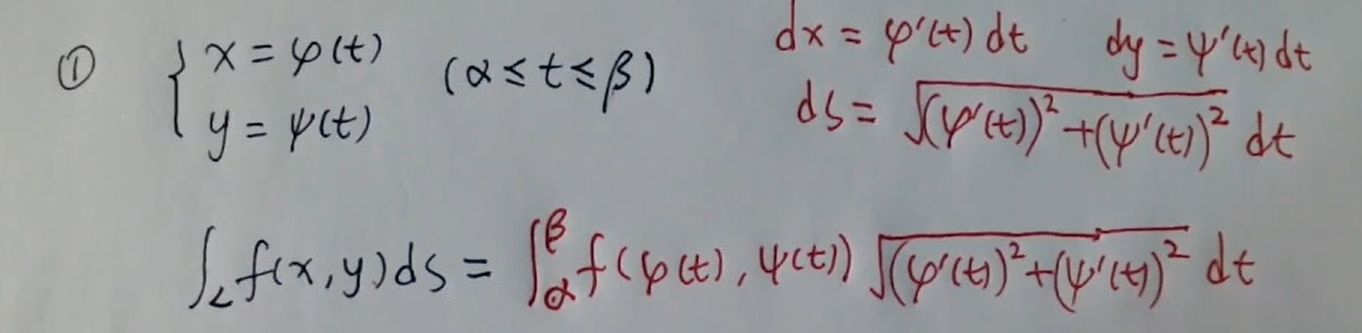 ① { x = φ(t) (α ≤ t ≤ β) dx = φ'(t) dt dy = ψ'(t) dt
y = ψ(t) ds = √((φ'(t))² + (ψ'(t))²) dt
∫_L f(x, y) ds = ∫_α^β f(φ(t), ψ(t)) √((φ'(t))² + (ψ'(t))²) dt